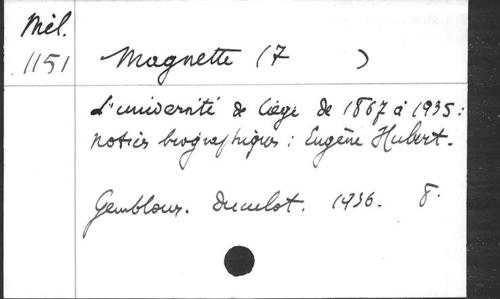 Mél.
1151
Magnette (F )
L'université de Liége de 1867 à 1935:
notices biographiques: Eugène Hubert.
Gembloux. Duculot. 1936. 8.